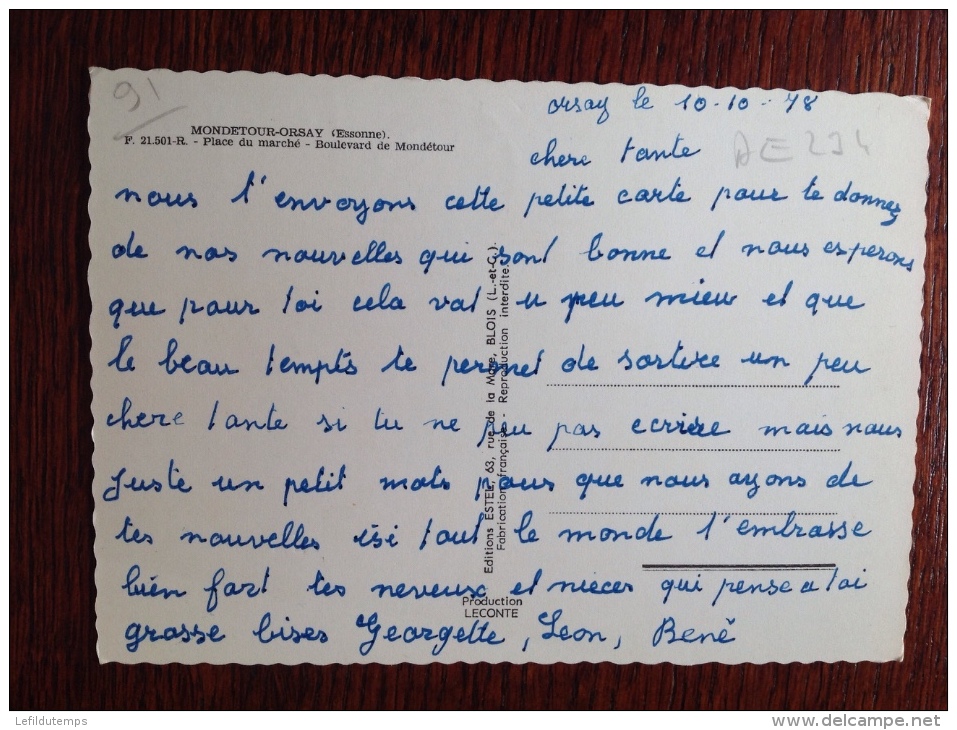 91
orsay le 10-10-78
MONDETOUR-ORSAY (Essonne).
F. 21.501-R. - Place du marché - Boulevard de Mondétour
chere tante
AE294
nous t'envoyons cette petite carte pour te donnes
de nos nouvelles qui sont bonne et nous esperons
que pour toi cela vat u peu mieu et que
le beau tempts te permet de sortire un peu
chere tante si tu ne peu pas ecrire mais nous
juste un petit mots pour que nous ayons de
tes nouvelles isi tout le monde t'embrasse
bien fort tes neveux et nieces qui pense a toi
grosse bises Georgette, Leon, René
Editions ESTEL, 63, rue de la Mare, BLOIS (L.-et-C.).
Fabrication française - Reproduction interdite.
Production
LECONTE
Lefildutemps
delcampe.net